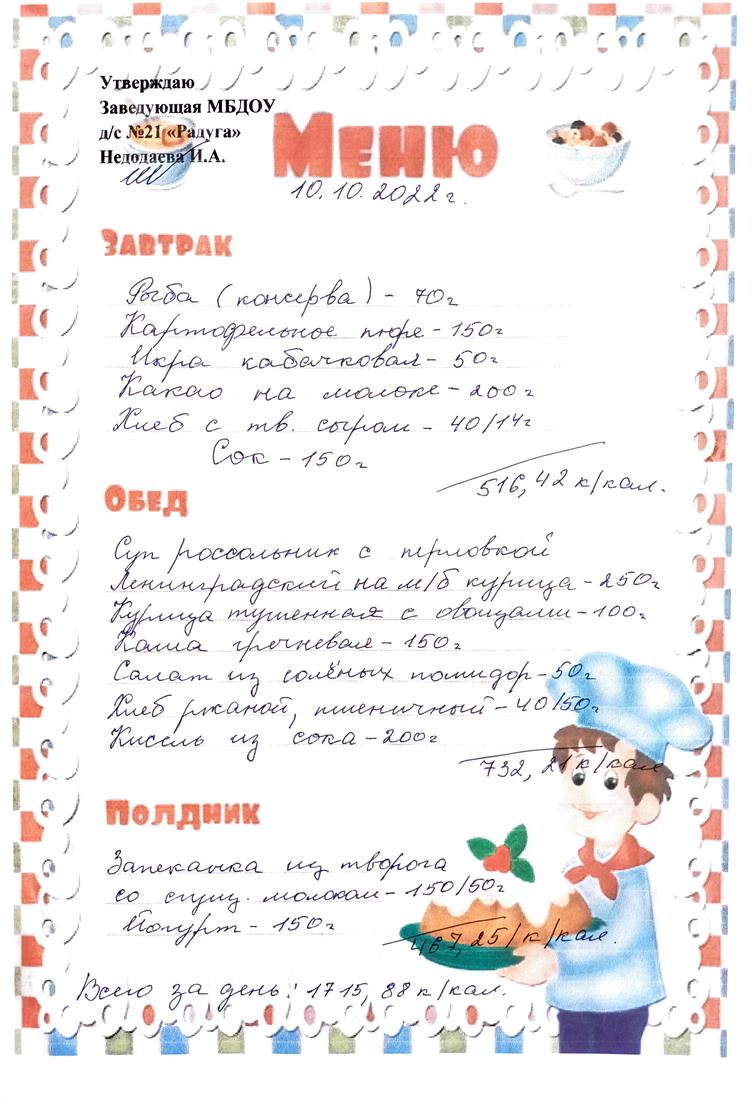 Утверждаю
Заведующая МБДОУ
д/с №21 «Радуга»
Недодаева И.А.
Меню
10.10.2022г.
Завтрак
Рыба (консерва) - 70г
Картофельное пюре - 150г
Икра кабачковая - 50г
Какао на молоке - 200г
Хлеб с тв. сыром - 40/14г
Сок - 150г
516,42 к/кал.
Обед
Суп россольник с перловкой
Ленинградский на м/б курица - 250г
Курица тушенная с овощами - 100г
Каша гречневая - 150г
Салат из солёных помидор - 50г
Хлеб ржаной, пшеничный - 40/50г
Кисель из сока - 200г
732,21 к/кал
Полдник
Запеканка из творога
со сгущ. молоком - 150/50г
Йогурт - 150г
467,25/к/кал.
Всего за день: 1715,88 к/кал.